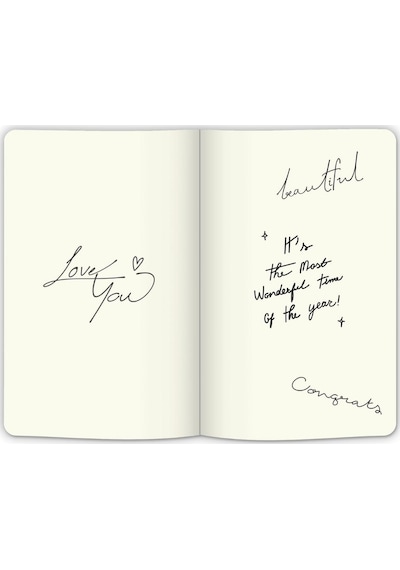 Love
You
beautiful
It's
the Most
Wonderful time
Of the year!
Congrats